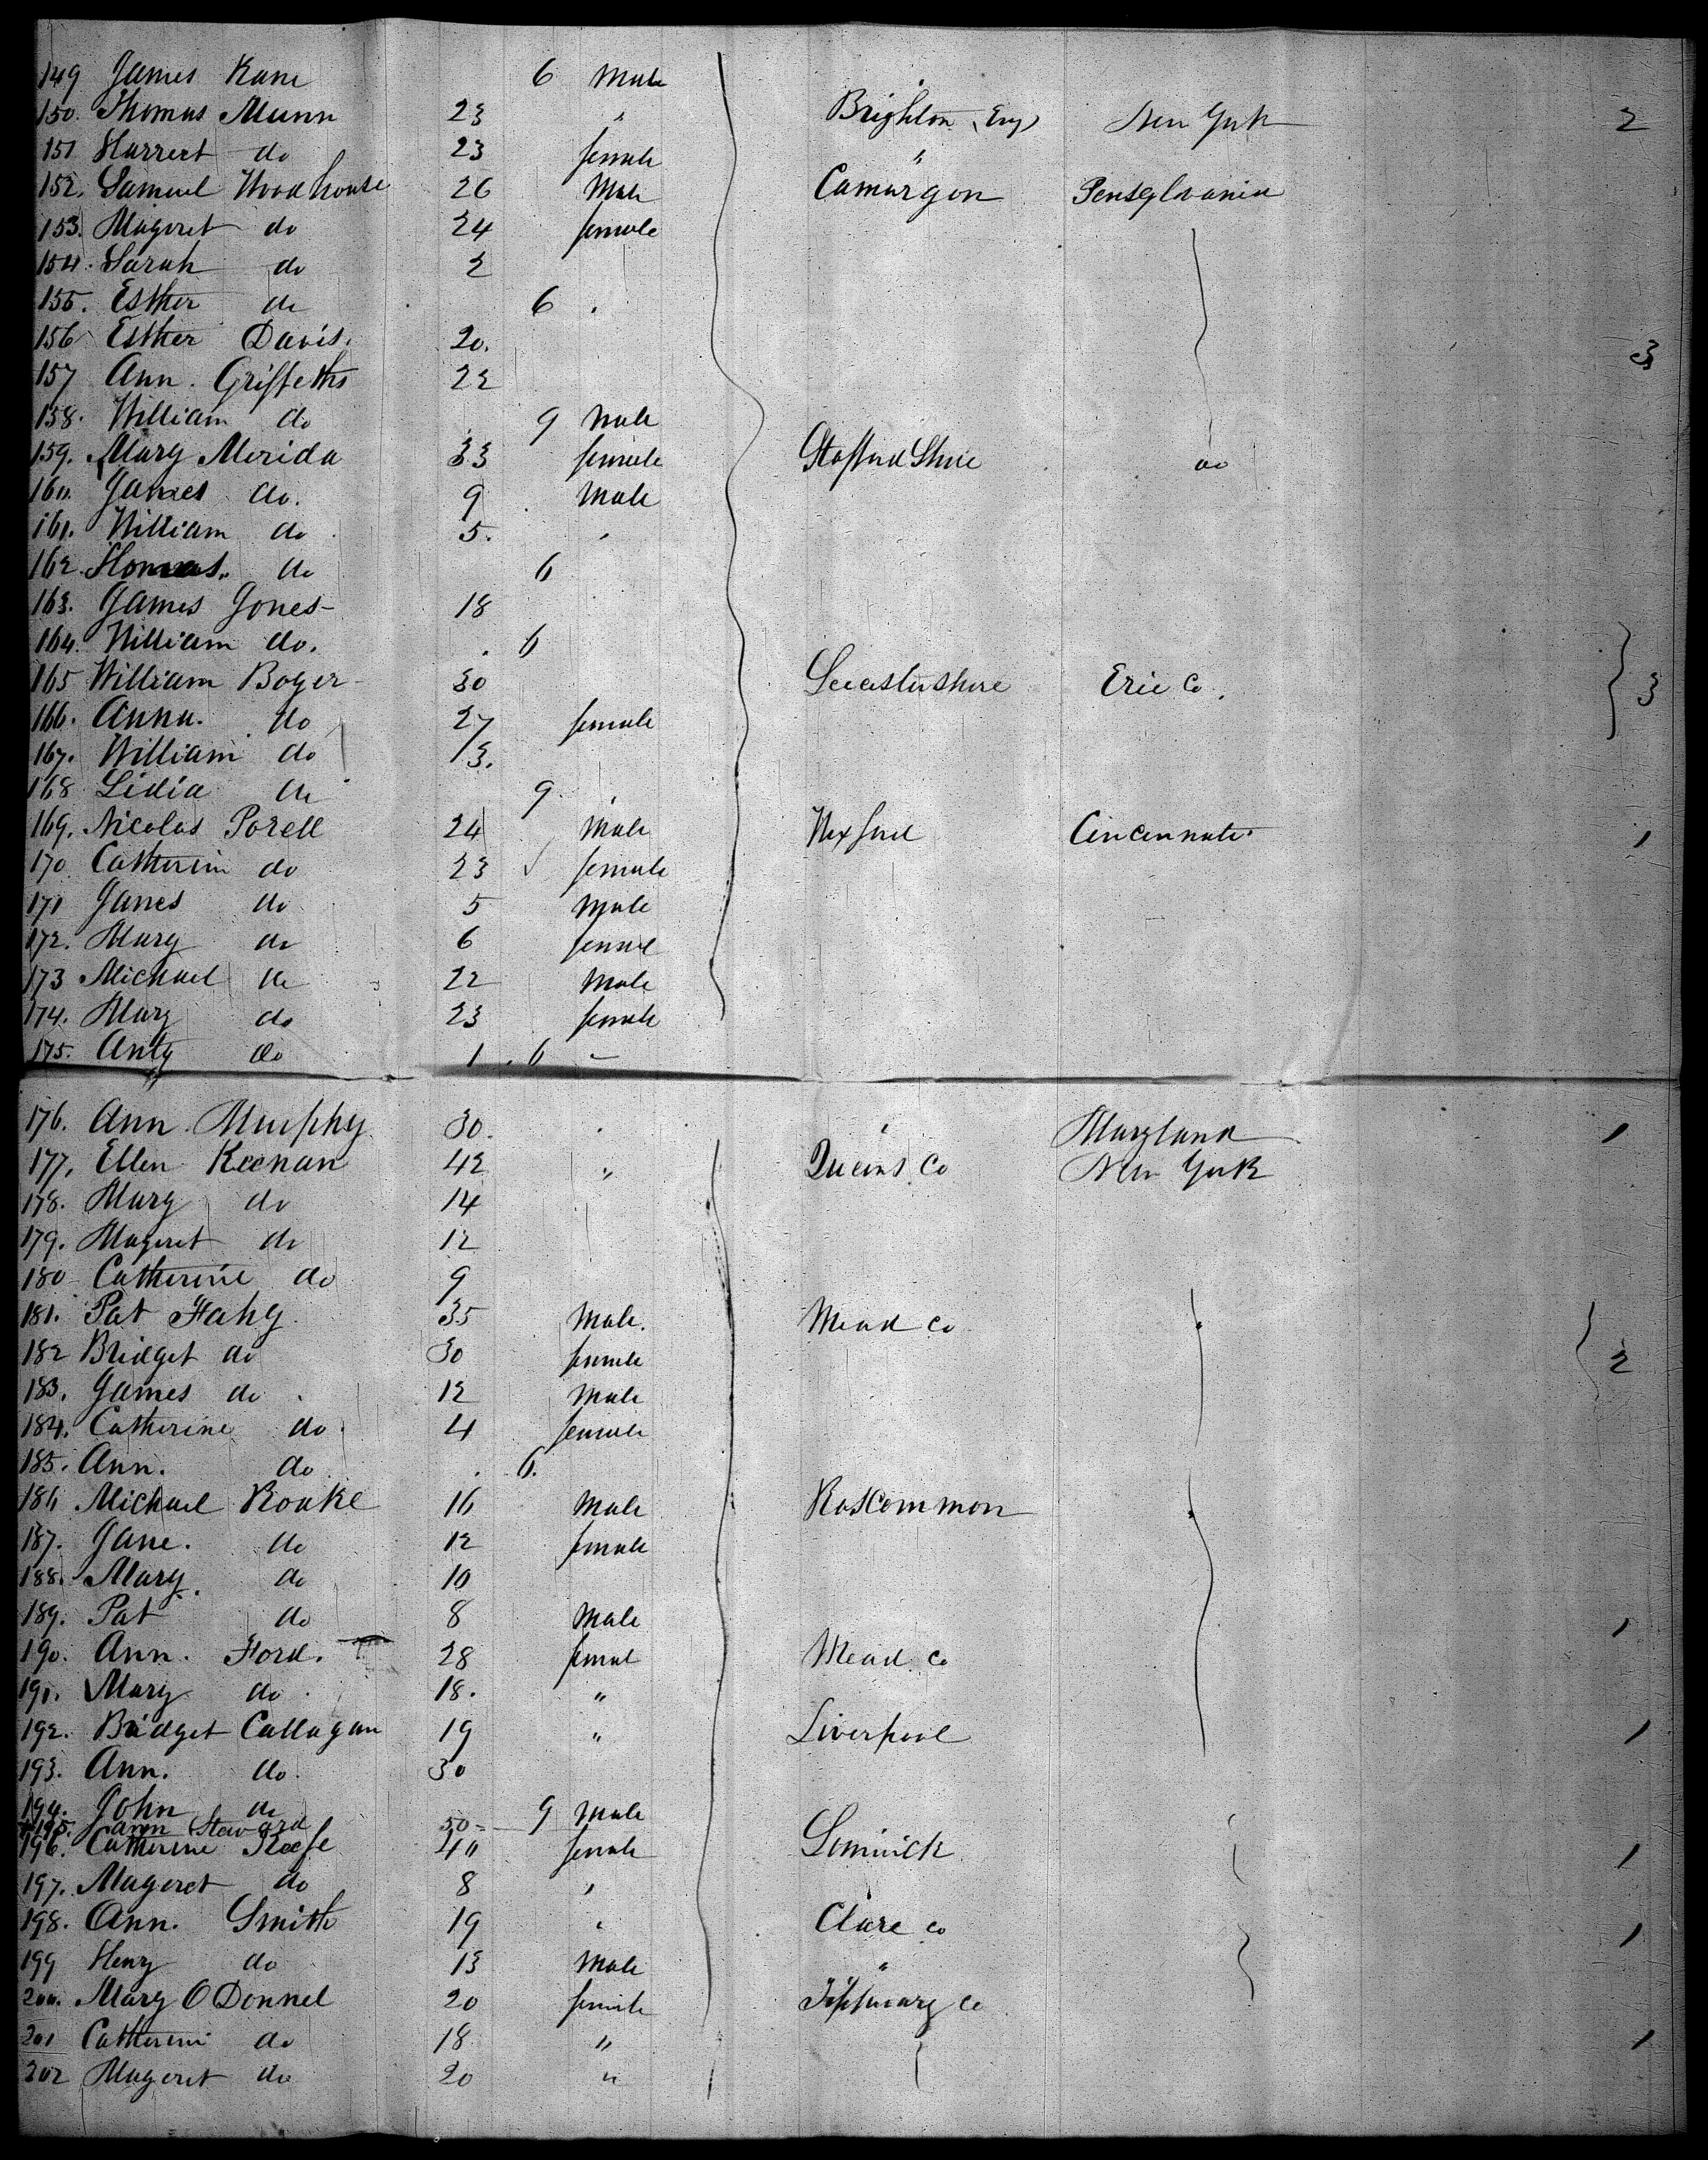 149 James Kane 6 Male "
150. Thomas Munn 23 " Brighton (Eng) New York 2
151 Harrert do 23 female "
152. Samuel Woodhouse 26 Male Camargon Pensylvania
153. Mageret do 24 female
154. Sarah do 2
155. Esther do 6 "
156 Esther Davis. 20. 3
157 Ann. Griffeths 22
158. William do 9 Male
159. Mary Merida 33 female Stafford Shire do
160. James do. 9 Male
161. William do 5. "
162. Thomas. do 6
163. James Jones 18
164. William do. 6
165 William Boyer 30 Leicestershire Erie Co. 3
166. Anna. do 27 female
167. William do 13.
168 Lidia do 9 "
169. Nicolas Porell 24 Male Wexford Cincennati 1
170 Catherin do 23 female
171 James do 5 Male
172. Mary do 6 femal
173 Michael do 22 Male
174. Mary do 23 female
175. Anty do 1. 6 "
176. Ann. Murphy 30. " " Maryland 1
177. Ellen Keenan 42 " Queens Co New York
178. Mary do 14
179. Mageret do 12
180 Catherine do 9
181. Pat Fahy 35 Male. Mead Co
182 Bridget do 30 female 2
183. James do 12 Male
184. Catherine do. 4 female
185. Ann. do 6.
186 Michael Roake 16 Male Roscommon
187. Jane. do 12 female
188. Mary. do 10
189. Pat do 8 Male 1
190. Ann. Ford. 28 femal Mead Co
191. Mary do 18. "
192. Bridget Callagan 19 " Liverpool 1
193. Ann. do 30
194. John do 9 Male
195. Steward 50
196. Catherine Keefe 40 female Lomirick 1
197. Mageret do 8 " "
198. Ann. Smith 19 " Clare Co 1
199 Henry do 13 Male "
200. Mary O Donnel 20 female Tipperary Co
201 Catherine do 18 " 1
202 Mageret do 20 "